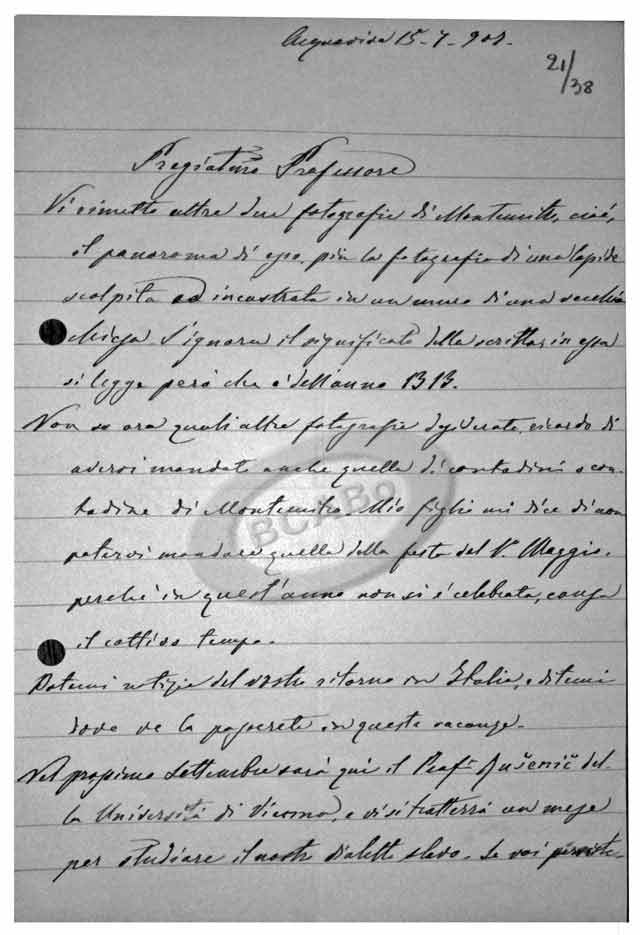 Acquaviva 15-7-908.
21/38
Pregiatmo Professore
Vi rimetto altre due fotografie di Montemitro, cioé,
il panorama di esso, più la fotografia di una lapide
scolpita ed incastrata in un muro di una vecchia
chiesa. S'ignora il significato della scritta, in essa
si legge però che é dell'anno 1313.
Non so ora quali altre fotografie desiderate, ricordo di
avervi mandato anche quella di contadini e con-
tadine di Montemitro. Mio figlio mi dice di non
potervi mandare quella della festa del 1°. Maggio,
perché in quest'anno non si é celebrata, causa
il cattivo tempo.
BCABo
Datemi notizie del vostro ritorno in Italia, e ditemi
dove ve la passerete in queste vacanze.
Nel prossimo Settembre sarà qui il Prof. del-
la Università di Vienna, e vi si tratterrà un mese
per studiare il nostro dialetto slavo. Se voi